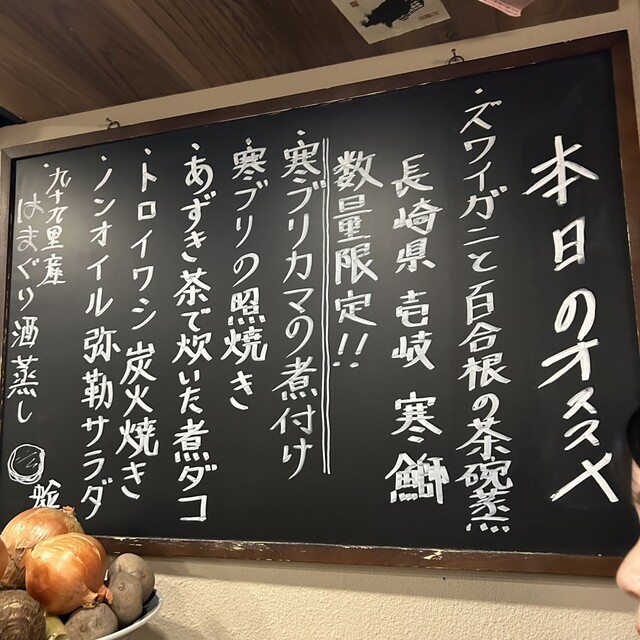 本日のオススメ
・ズワイガニと百合根の茶碗蒸し
長崎県 壱岐 寒鰤
数量限定!!
・寒ブリカマの煮付け
・寒ブリの照焼き
・あずき茶で炊いた煮ダコ
・トロイワシ炭火焼き
・ノンオイル弥勒サラダ
・九十九里産
はまぐり酒蒸し